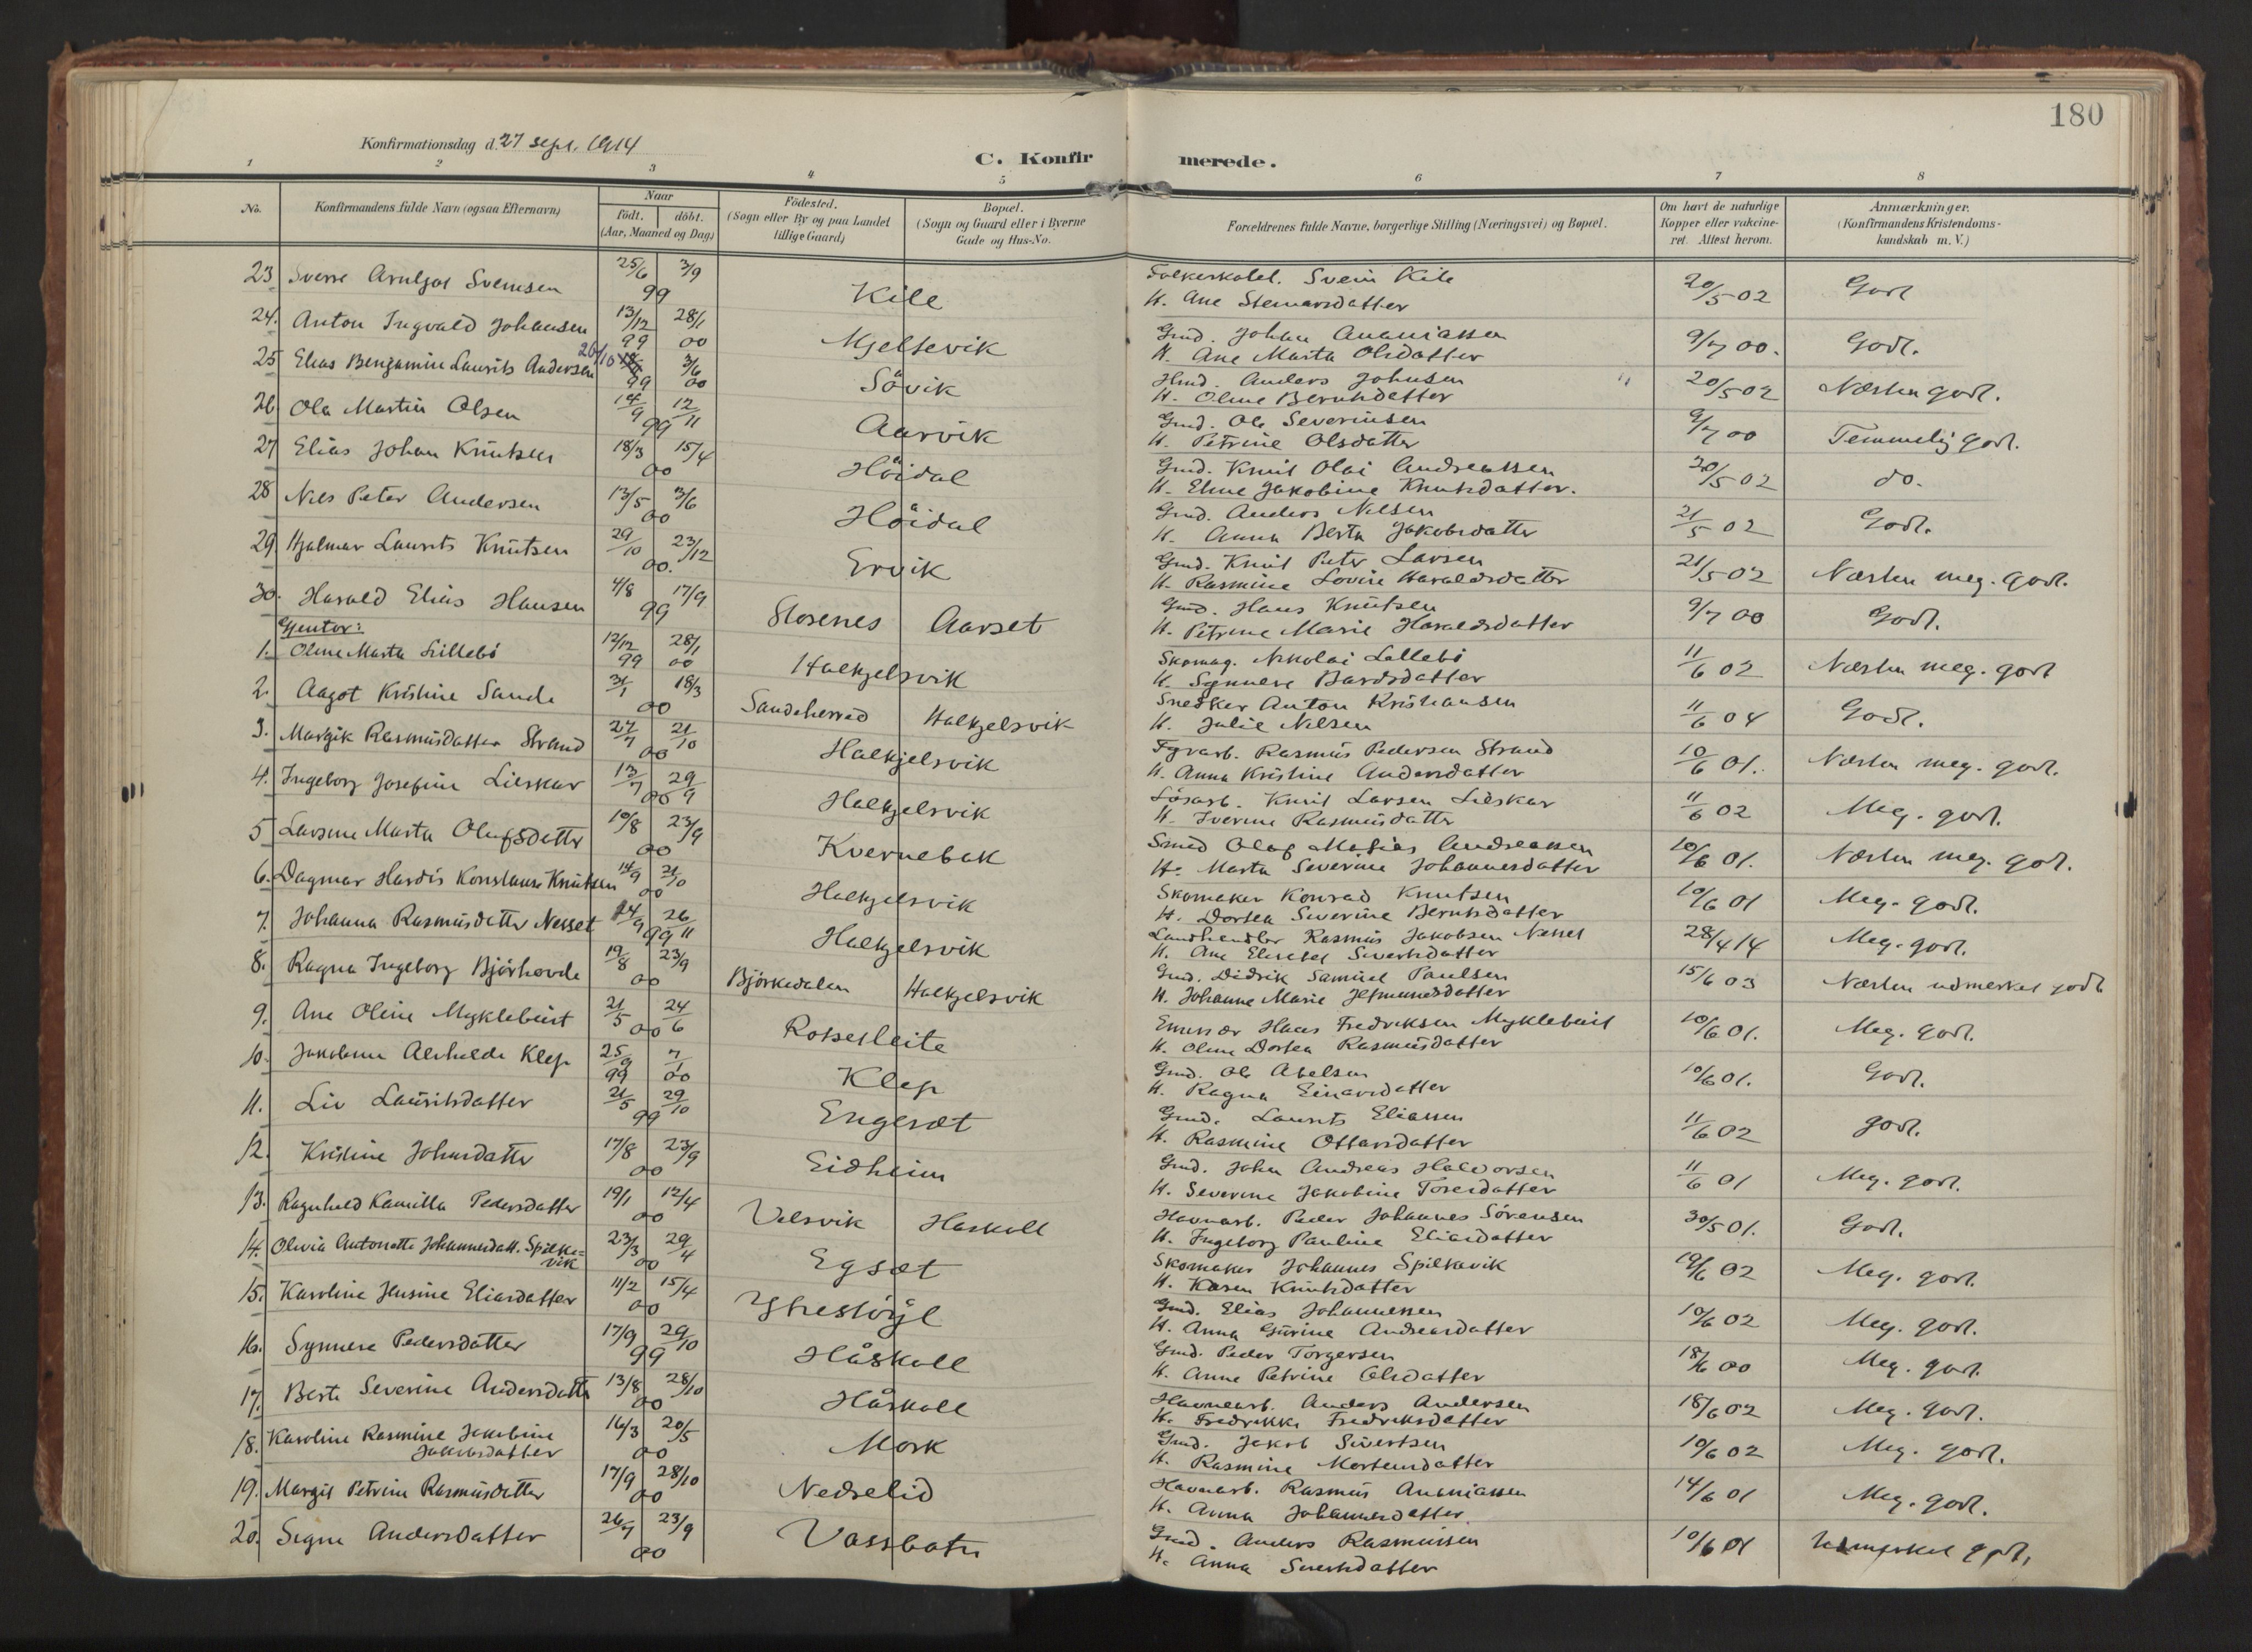 180
Konfirmationsdag d. 27 sept. 1914
C. Konfirmerede.
1 2 3 4 5 6 7 8
No.
Konfirmandens fulde Navn (ogsaa Efternavn)
Naar
födt. döbt.
(Aar, Maaned og Dag)
Födested.
(Sogn eller By og paa Landet
tillige Gaard)
Bopæl.
(Sogn og Gaard eller i Byerne
Gade og Hus-No.
Forældrenes fulde Navne, borgerlige Stilling (Næringsvei) og Bopæl.
Om havt de naturlige
Kopper eller vakcine-
ret. Attest herom.
Anmærkninger.
(Konfirmandens Kristendoms-
kundskab m. V.)
23 Sverre Arnljot Sveinsen 25/6 99 3/9 Kile
Svein Kile
H. Ane Steinarsdatter 20/5 02 Godt
24. Anton Ingvald Johansen 13/12 99 28/1 00 Mjeltevik
Gmd. Johan Ananiassen
H. Ane Marta Olsdatter 9/7 00. Godt.
25 Elias Benjamin Laurits Andersen 20/10 99 3/6 00 Sövik
Hmd. Anders Johnsen
H. Oline Berntsdatter 20/5 02 Næsten godt.
26 Ola Martin Olsen 14/9 99 12/11 Aarvik
Gmd. Ole Severinsen
H. Petrine Olsdatter 9/7 00 Temmelig godt.
27 Elias Johan Knutsen 18/3 00 15/4 Höidal
Gmd. Knut Olai Andreassen
H. Eline Jakobine Knutsdatter. 20/5 02 do.
28 Nils Peter Andersen 13/5 00 3/6 Höidal
Gmd. Anders Nilsen
H. Anna Berta Jakobsdatter 21/5 02 Godt.
29 Hjalmar Laurits Knutsen 29/10 00. 23/12 Ervik
Gmd. Knut Peter Larsen
H. Rasmine Lovise Haraldsdatter 21/5 02 Næsten meg. godt.
30. Harald Elias Hansen 4/8 99 17/9 Slosenes Aarset
Gmd. Hans Knutsen
H. Petrine Marie Haraldsdatter 9/7 00 Godt.
Gjentor:
1. Oline Marta Lillebö 12/12 99 28/1 00 Halkjelsvik
Skomag. Nikolai Lillebö
H. Synneve Bardsdatter 11/6 02 Næsten meg. godt
2. Aagot Kristine Sande 31/1 00 18/3 Sandeherred Halkjelsvik
Snedker Anton Kristiansen
H. Julie Nilsen 11/6 04 Godt.
3. Margit Rasmusdatter Strand 27/7 00 21/10 Halkjelsvik
Rasmus Pedersen Strand
H. Anna Kristine Andersdatter 10/6 01. Næsten meg. godt.
4. Ingeborg Josefine Lieskar 13/7 00 29/9 Halkjelsvik
Lösarb. Knut Larsen Lieskar
H. Iverine Rasmusdatter 11/6 02 Meg. godt.
5 Larsine Marta Olufsdatter 10/8 00 23/9 Kvernebak
Smed Olaf Matias Andreassen
H. Marta Severine Johannesdatter 10/6 01. Næsten meg. godt.
6. Dagmar Hardis Konstanse Knutsen 14/9 00 21/10 Halkjelsvik
Skomaker Konrad Knutsen
H. Dortea Severine Berntsdatter 10/6 01 Meg. godt.
7. Johanna Rasmusdatter Nesset 24/9 99 26/11 Halkjelsvik
Landhandler Rasmus Jakobsen Nesset
H. Ane Elisebet Sivertsdatter 28/4 14 Meg. godt.
8. Ragna Ingeborg Björhovde 19/8 00 23/9 Björkedalen Halkjelsvik
Gmd. Didrik Samuel Paulsen
H. Johanne Marie 15/6 03 Næsten udmerket godt
9. Ane Oline Myklebust 21/5 00 24/6 Rotsetleite
Emissær Hans Fredriksen Myklebust
H. Oline Dortea Rasmusdatter 10/6 01. Meg. godt.
10. Jakobine Alvhilde Klep 25/9 99 7/1 00 Klep
Gmd. Ole Abelsen
H. Ragna Einarsdatter 10/6 01. Godt.
11. Liv Lauritsdatter 21/5 99 29/10 Engeset
Gmd. Laurits Eliassen
H. Rasmine Ottarsdatter 11/6 02 godt.
12. Kristine Johnsdatter 17/8 00 23/9 Eidheim
Gmd. John Andreas Haldorsen
H. Severine Jakobine Toresdatter 11/6 01 Meg. godt.
13. Ragnhild Kamilla Pedersdatter 19/1 00 12/4 Velsvik Haskoll
Havnarb. Peder Johannes Sörensen
H. Ingeborg Pauline Eliasdatter 30/5 01. Godt.
14. Olivia Antonette Johannesdatt. Spilke-
vik 23/3 00 29/4 Egset
Skomaker Johannes Spilkevik
H. Karen Knutsdatter 19/6 02 Meg. godt.
15. Karoline Husine Eliasdatter 11/2 00 15/4 Ytrestöyl
Gmd. Elias Johannessen
H. Anna Gurine Andreasdatter 10/6 02 Meg. godt.
16. Synneve Pedersdatter 17/9 99 29/10 Håskoll
Gmd. Peder Torgersen
H. Anne Petrine Olsdatter 18/6 00 Meg. godt.
17. Berte Severine Andersdatter 13/8 00 28/10 Håskoll
Havnearb. Anders Andersen
H. Fredrikke Fredriksdatter 18/6 02 Meg. godt.
18. Karoline Rasmine Jakobine
Jakobsdatter 16/3 00 20/5 Mork
Gmd. Jakob Sivertsen
H. Rasmine Mortensdatter 10/6 02 Meg. godt.
19. Margit Petrine Rasmusdatter 17/9 00 28/10 Nedrelid
Havnarb. Rasmus Ananiassen
H. Anna Johannesdatter. 14/6 01 Meg. godt.
20. Signe Andersdatter 26/7 00 23/9 Vassbotn
Gmd. Anders Rasmussen
H. Anna Sivertsdatter 10/6 01 Udmerket godt.